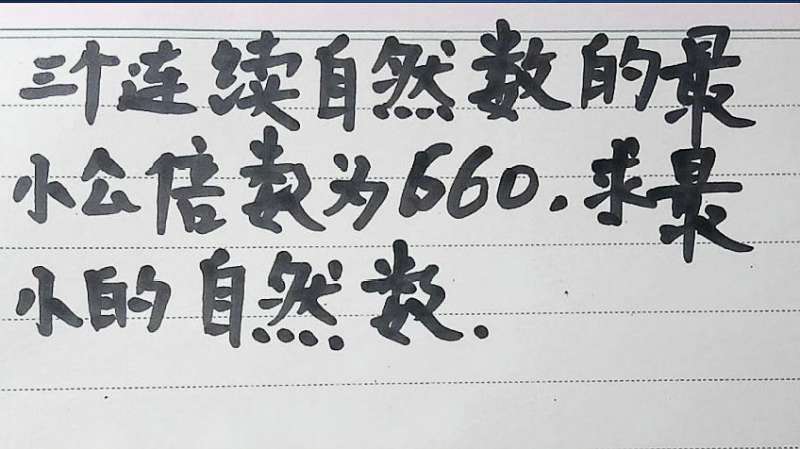 三个连续自然数的最
小公倍数为660.求最
小的自然数.